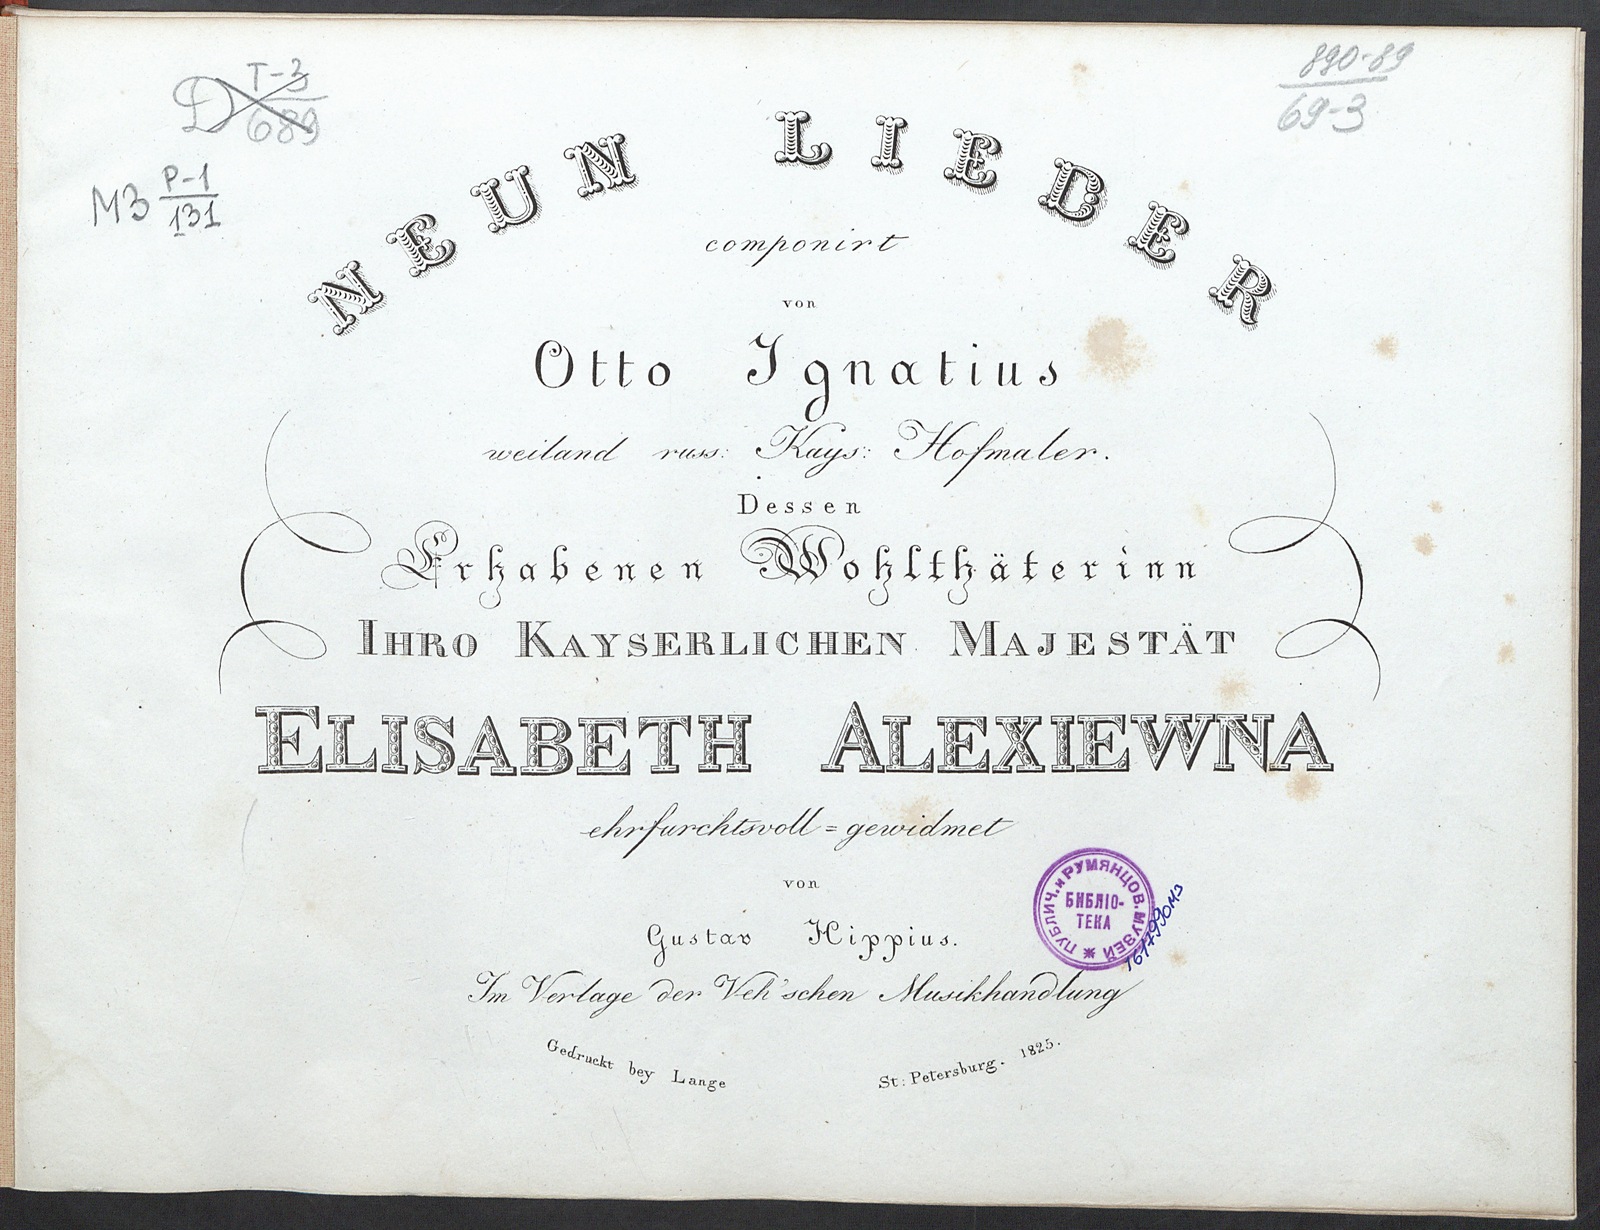 Т-3
689
МЗ Р-1
131
890-89
69-3
NEUN LIEDER
componirt
von
Otto Ignatius
weiland russ: Kays: Hofmaler.
Dessen
Erhabenen Wohlthäterinn
IHRO KAYSERLICHEN MAJESTÄT
ELISABETH ALEXIEWNA
ehrfurchtsvoll=gewidmet
von
Gustav Hippius.
ПУБЛИЧ. и РУМЯНЦОВ. МУЗЕЙ
БИБЛІО-
ТЕКА
Im Verlage der Veh'schen Musikhandlung
Gedruckt bey Lange St: Petersburg. 1825.